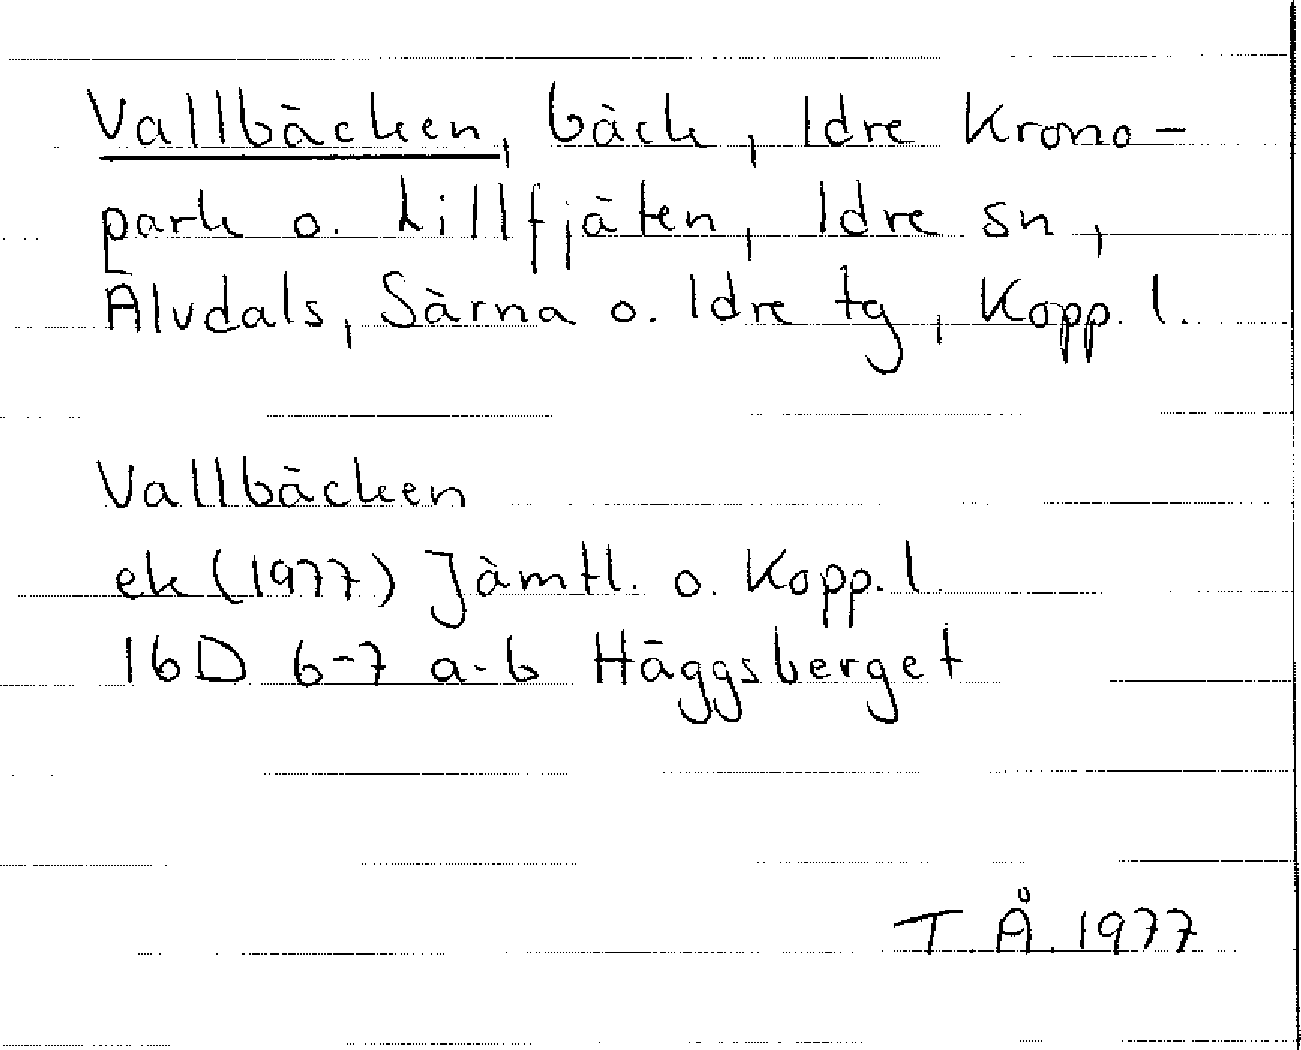 Vallbäcken, bäck, Idre Krono-
park o. Lillfjäten, Idre sn,
Älvdals, Särna o. Idre tg, Kopp. l.
Vallbäcken
ek (1977) Jämtl. o. Kopp. l.
16D 6-7 a-b Häggsberget
T Å. 1977